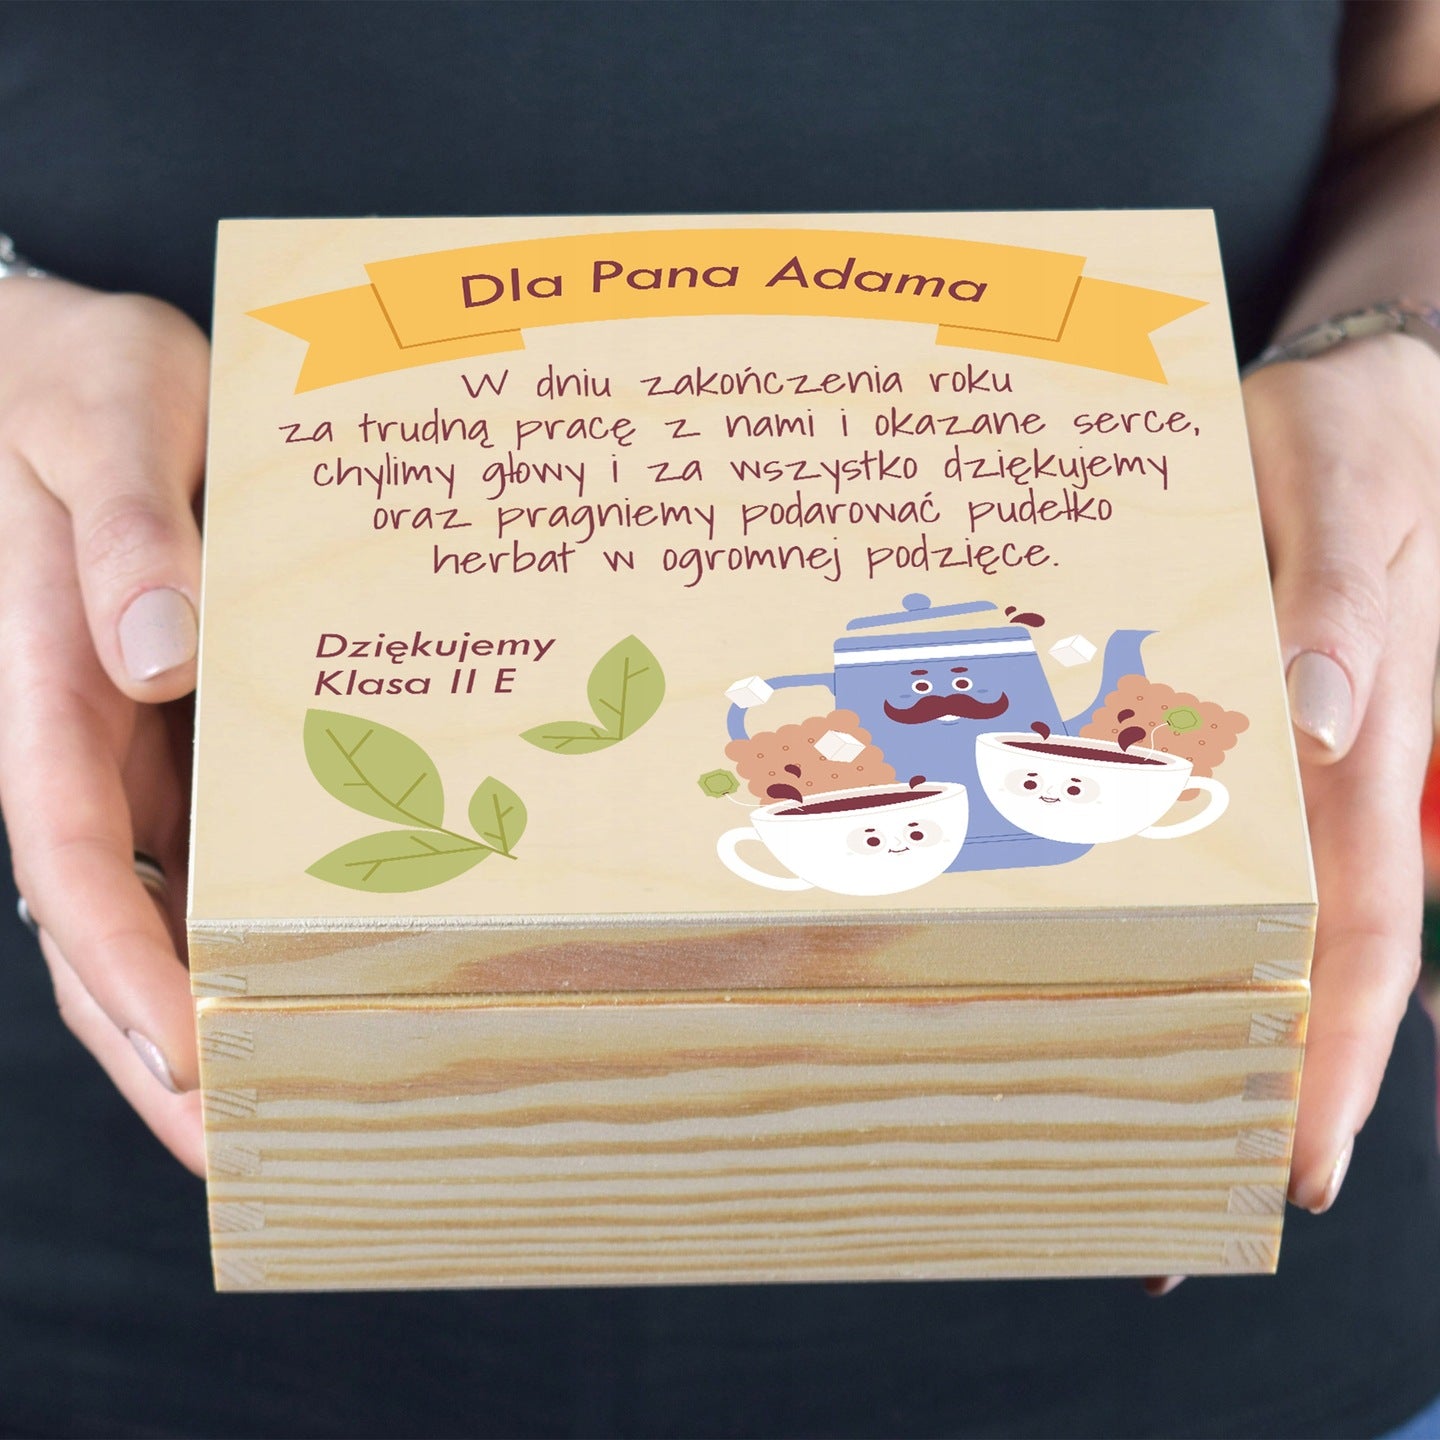 Dla Pana Adama
W dniu zakończenia roku
za trudną pracę z nami i okazane serce,
chylimy głowy i za wszystko dziękujemy
oraz pragniemy podarować pudełko
herbat w ogromnej podzięce.
Dziękujemy
Klasa II E